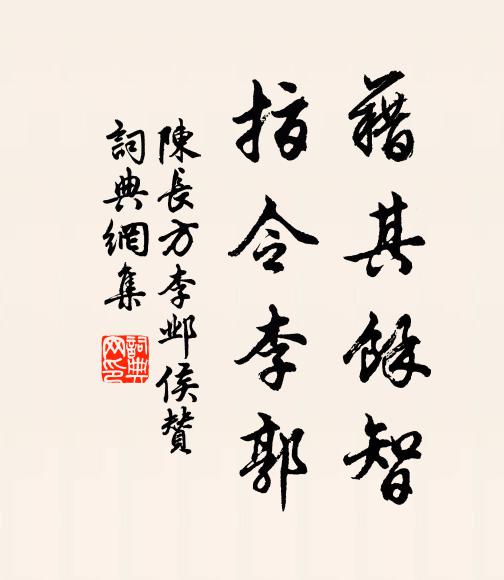 藉其餘智
指令李郭
陳長方李鄴侯贊
詞典網集
詞典網印